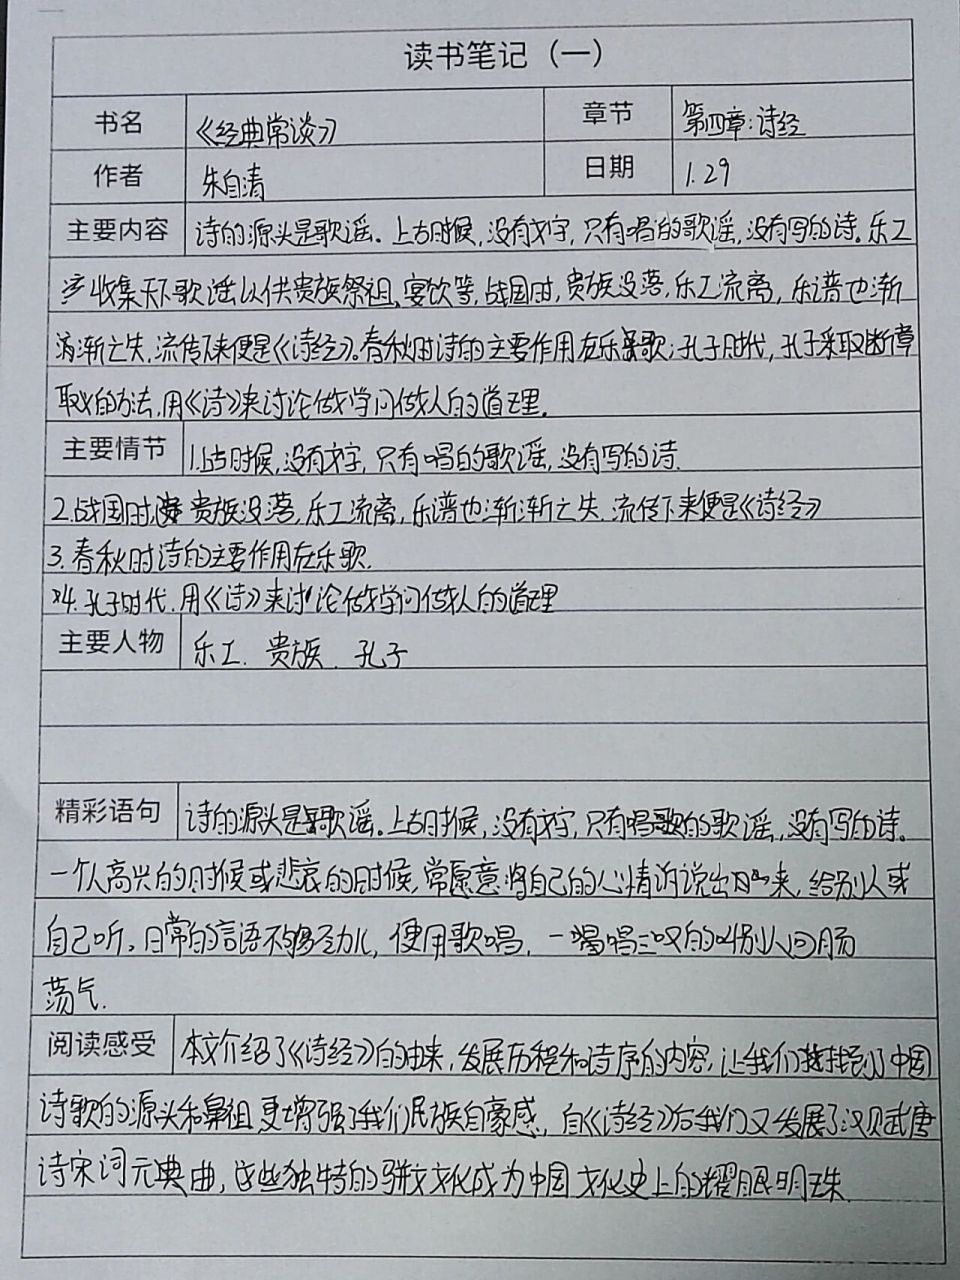 读书笔记（一）
书名 《经典常谈》 章节 第四章:诗经
作者 朱自清 日期 1.29
主要内容 诗的源头是歌谣。上古时候,没有文字,只有唱的歌谣,没有写的诗。乐工
收集天下歌谣以供贵族祭祖、宴饮等,战国时,贵族没落,乐工流离,乐谱也渐
渐亡失,流传下来便是《诗经》。春秋时诗的主要作用在乐歌;孔子时代,孔子采取断章
取义的方法,用《诗》来讨论做学问做人的道理.
主要情节 1.上古时候,没有文字,只有唱的歌谣,没有写的诗.
2.战国时,贵族没落,乐工流离,乐谱也渐渐亡失.流传下来便是《诗经》
3.春秋时诗的主要作用在乐歌.
4.孔子时代.用《诗》来讨论做学问做人的道理
主要人物 乐工.贵族.孔子
精彩语句 诗的源头是歌谣。上古时候,没有文字,只有唱的歌谣,没有写的诗。
一个人高兴的时候或悲哀的时候,常愿意将自己的心情诉说出来,给别人或
自己听。日常的言语不够劲儿,便用歌唱,一唱三叹的叫别人回肠
荡气.
阅读感受 本文介绍了《诗经》的由来,发展历程和诗序的内容,让我们找到了中国
诗歌的源头和鼻祖.更增强了我们民族自豪感,自《诗经》后我们又发展了汉赋唐
诗宋词元典曲,这些独特的文化成为中国文化史上的耀眼明珠.